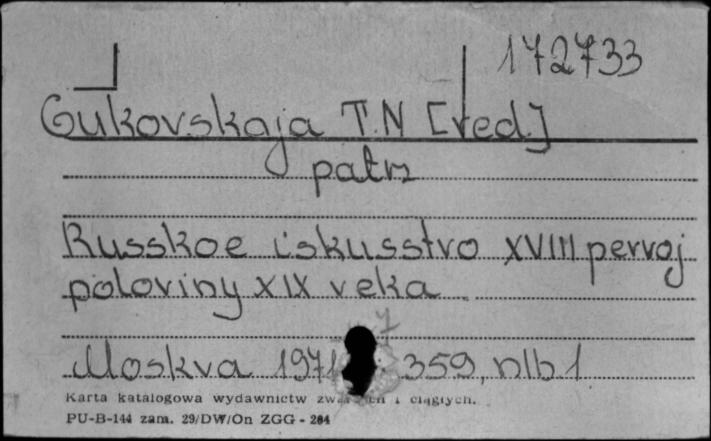 172733
Gukovskaja T.N [red.]
patrz
Russkoe iskusstvo XVIII pervoj
poloviny XIX veka
Moskva 1971 359, nlb 1
Karta katalogowa wydawnictw i ciągłych.
PU-B-144 zam. 29/DW/On ZGG - 284